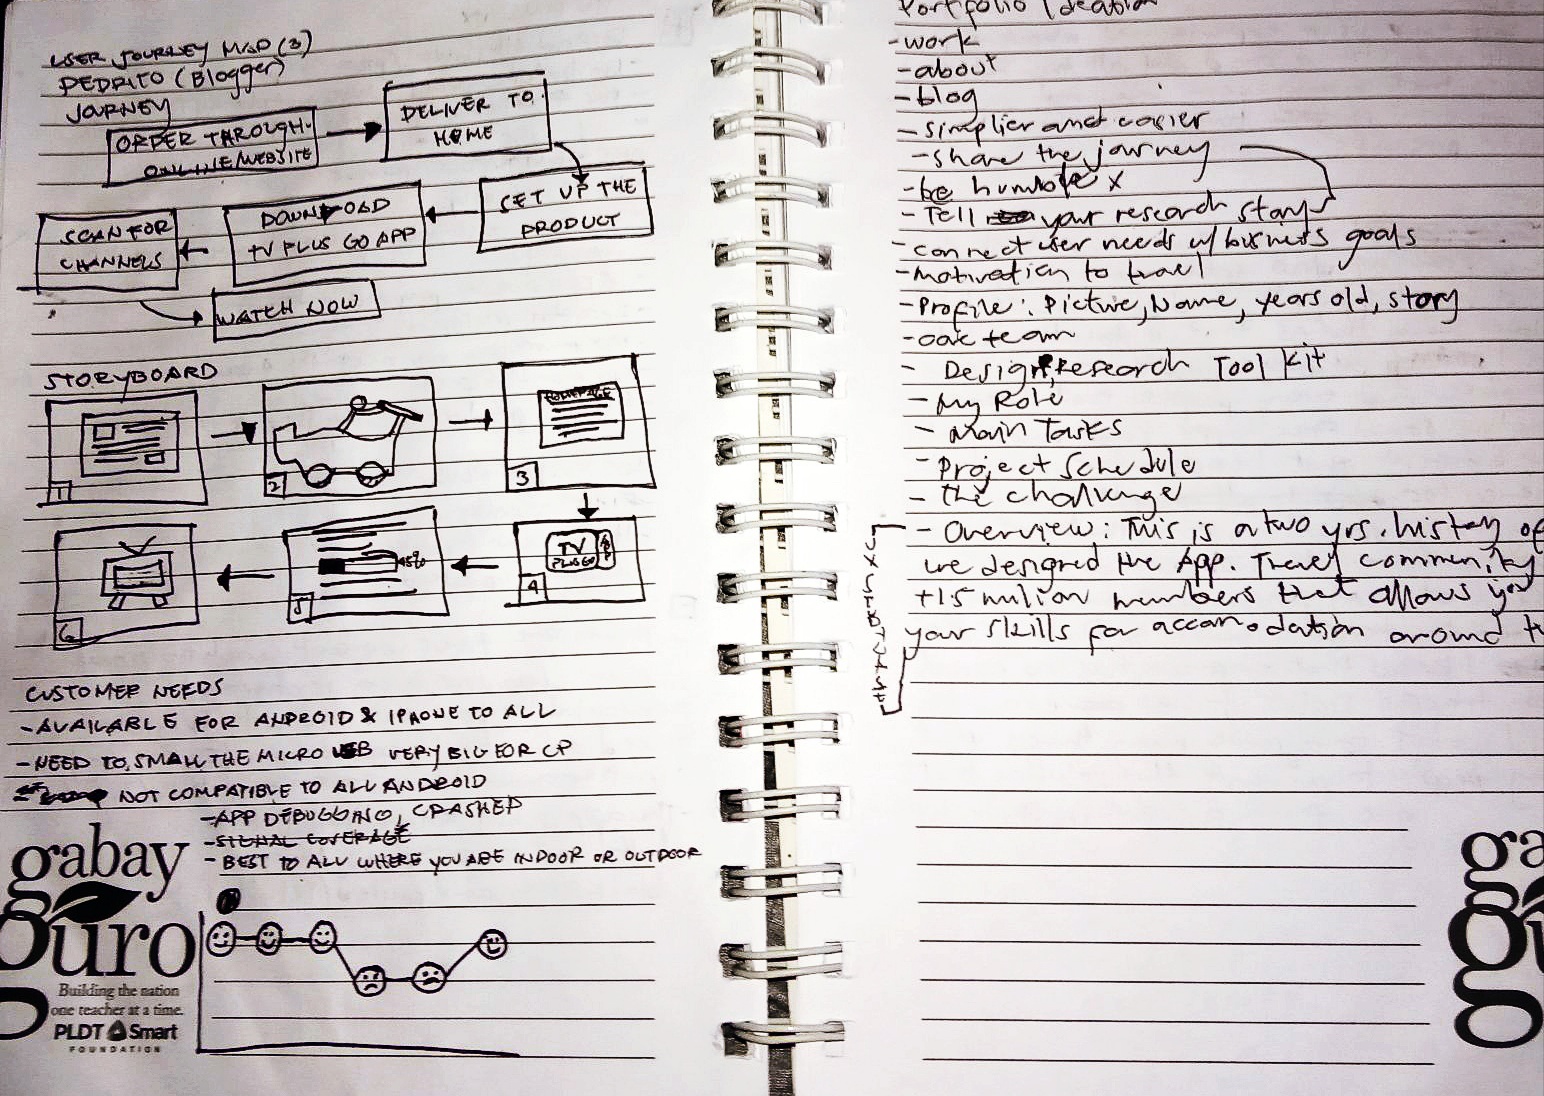 USER JOURNEY MAP (3)
PEDRITO (Blogger)
JOURNEY
ORDER THROUGH
ONLINE/WEBSITE
DELIVER TO
HOME
SET UP THE
PRODUCT
DOWNLOAD
TV PLUS GO APP
SCAN FOR
CHANNELS
WATCH NOW
STORYBOARD
1
2
HOMEPAGE
3
TV
PLUS GO
APP
4
5
6
CUSTOMER NEEDS
- AVAILABLE FOR ANDROID & IPHONE TO ALL
- NEED TO SMALL THE MICRO USB VERY BIG FOR CP
NOT COMPATIBLE TO ALL ANDROID
- APP DEBUGGING, CRASHED
- SIGNAL COVERAGE
- BEST TO ALL WHERE YOU ARE INDOOR OR OUTDOOR
gabay
guro
Building the nation
one teacher at a time.
PLDT Smart
FOUNDATION
Portfolio Ideation
- work
- about
- blog
- simplier and easier
- share the journey
- be humble x
- Tell your research story
- connect user needs w/ business goals
- Motivation to travel
- Profile: Picture, Name, years old, story
- our team
- Design Research Tool Kit
- My Role
- Main Tasks
- Project Schedule
- the challenge
- Overview: This is a two yrs. history of
we designed the App. Travel community
+15 million members that allows you
your skills for accomodation around
ga
gu